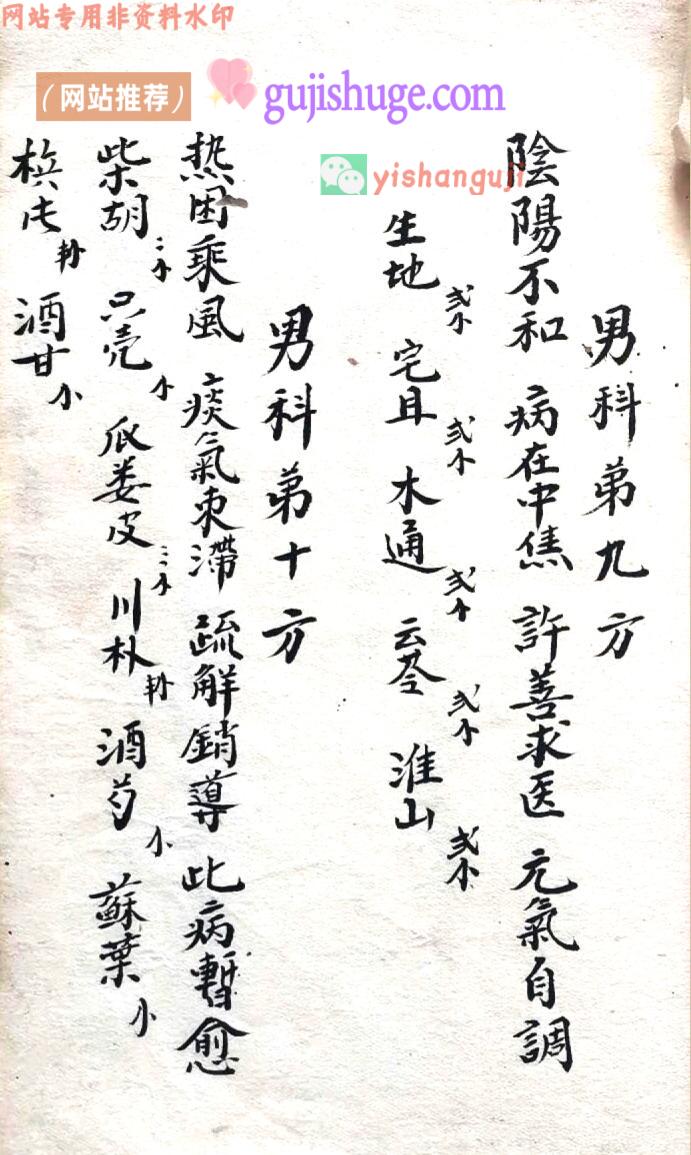 网站专用非资料水印
（网站推荐）
gujishuge.com
yishanguji
男科第九方
陰陽不和 病在中焦 許善求医 元氣自調
生地弍小 宅且弍小 木通弍小 云苓弍小 淮山弍小
男科第十方
热困乘風 痰氣束滯 疏解銷導 此病暫愈
柴胡 只壳 瓜蒌皮 川朴 酒芍小 蘇葉小
酒甘小